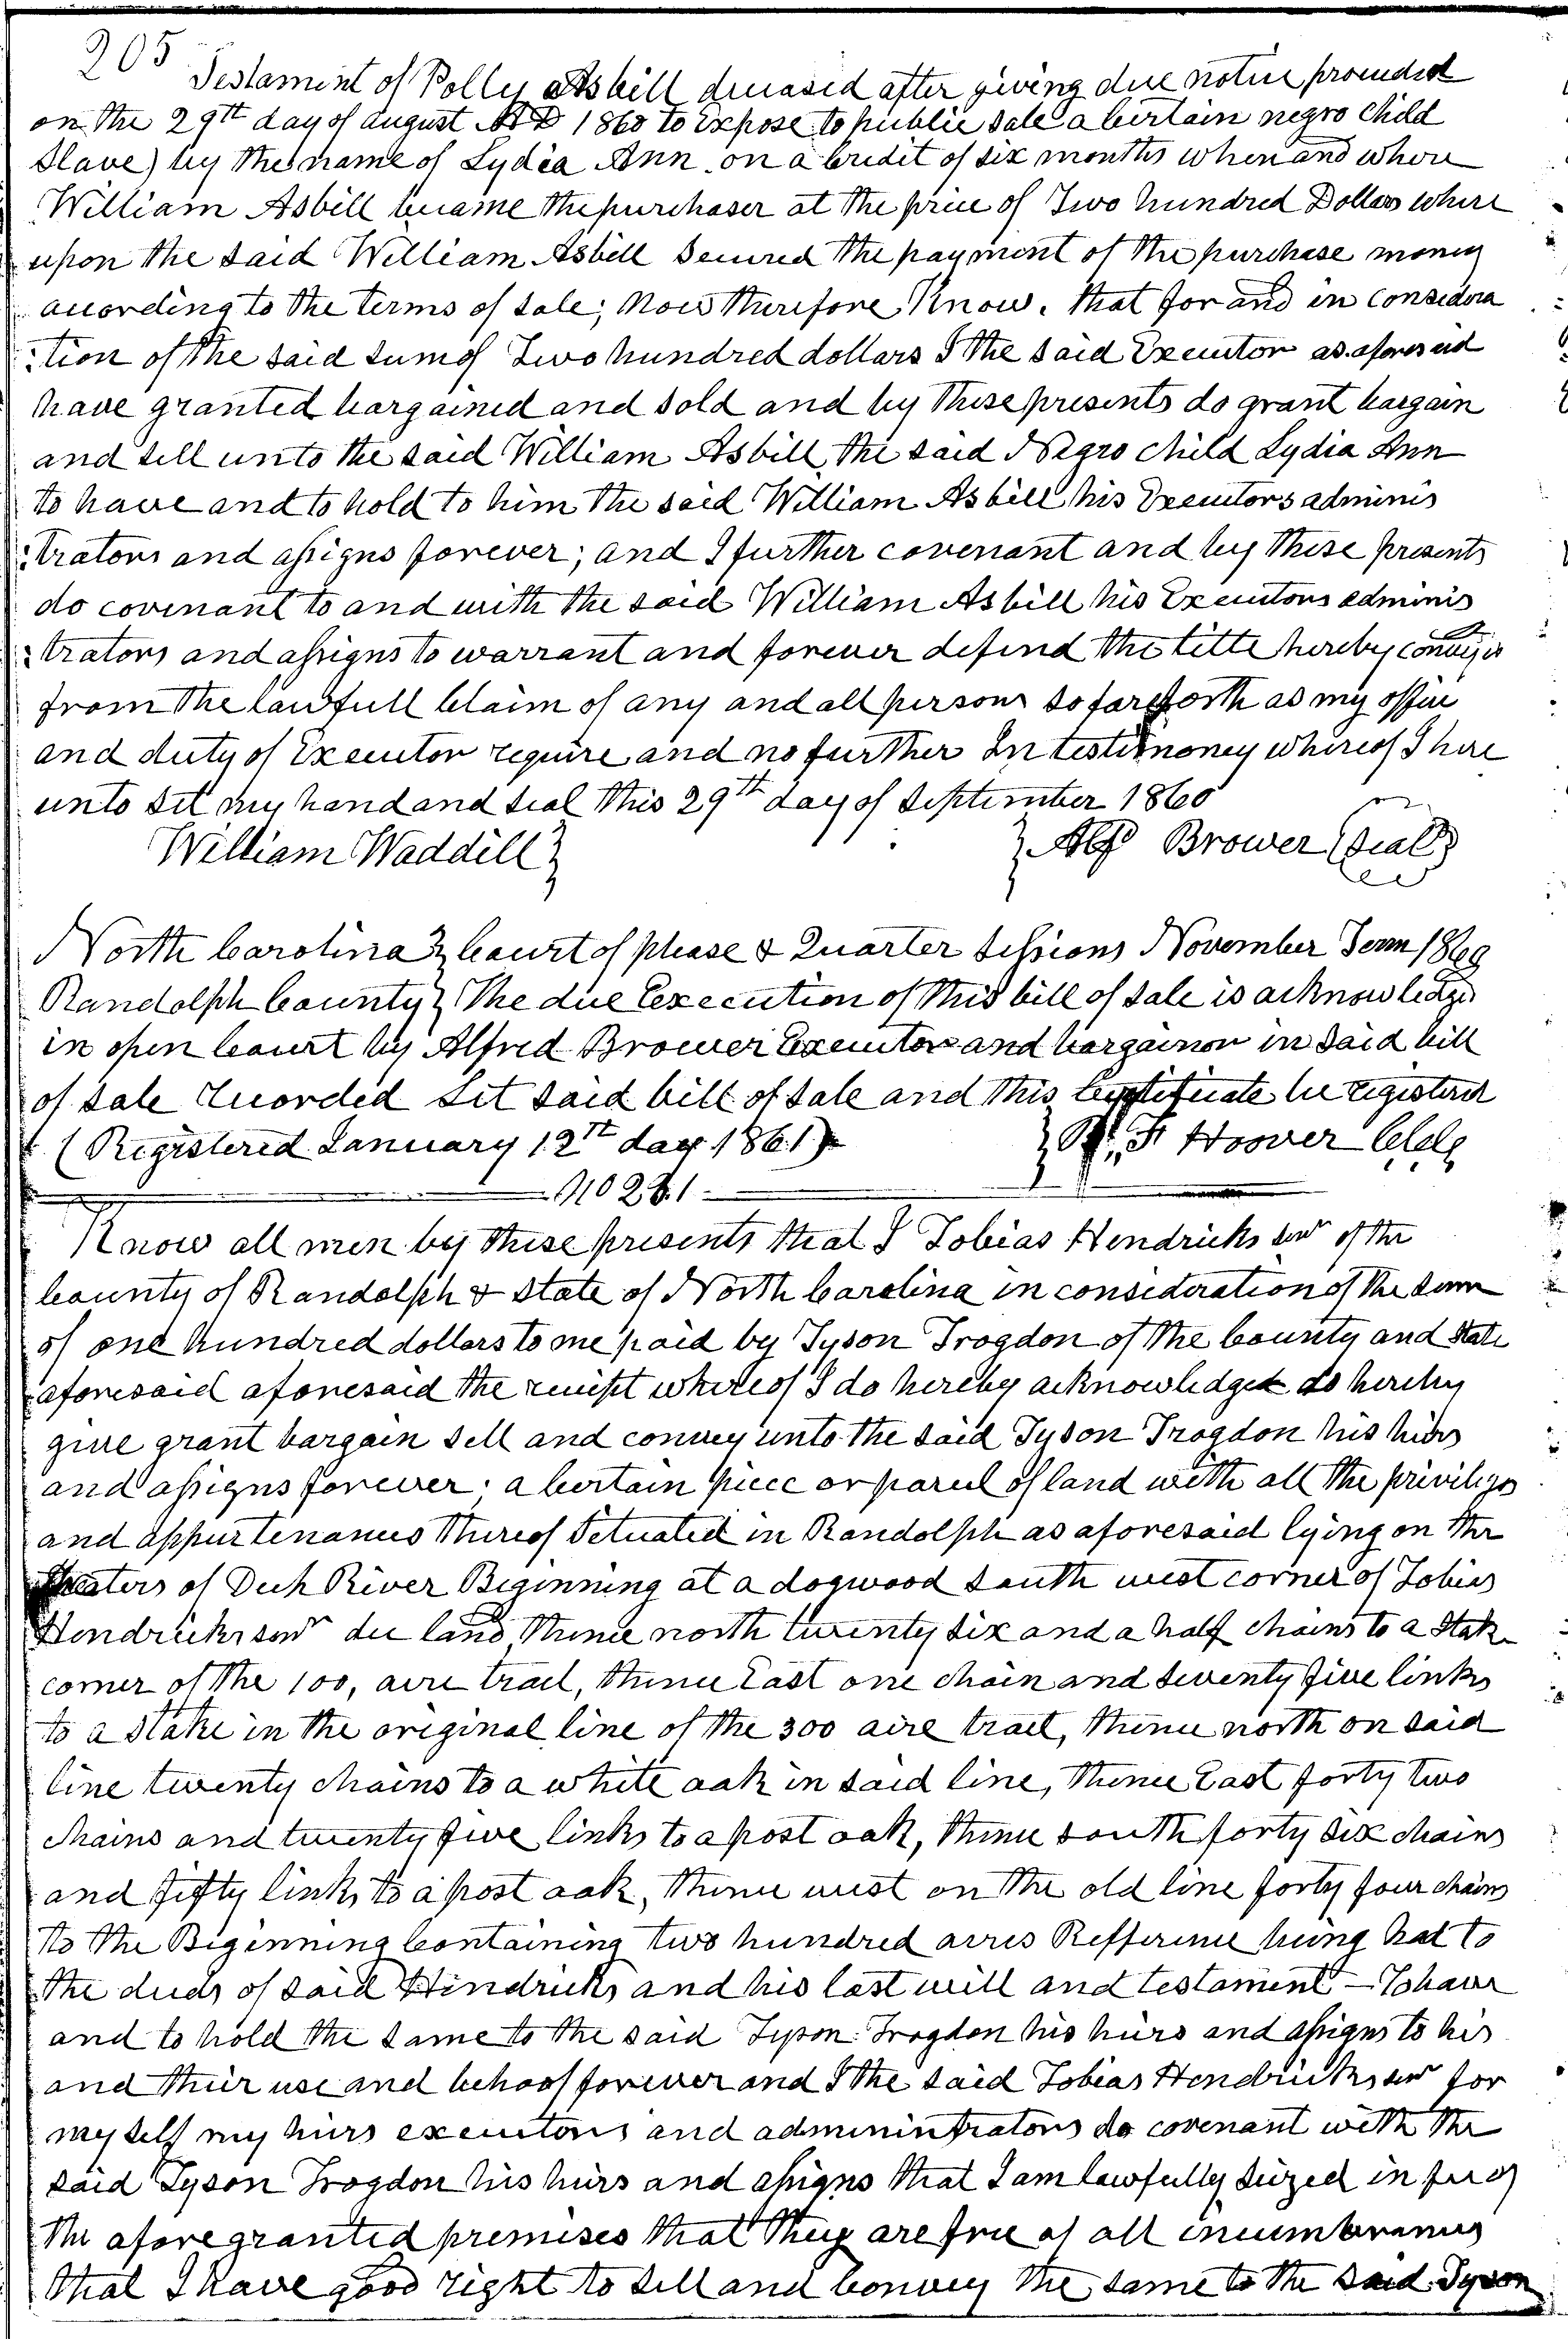 205
Testament of Polly Asbill deceased after giving due notice proceeded
on the 29th day of August AD 1860 to expose to public sale a certain negro child
Slave) by the name of Lydia Ann on a credit of six months when and where
William Asbill became the purchaser at the price of Two hundred Dollars where
upon the said William Asbill secured the payment of the purchase money
according to the terms of sale; now therefore Know. that for and in considera
:tion of the said sum of Two hundred dollars I the said Executor as aforesaid
have granted bargained and sold and by these presents do grant bargain
and sell unto the said William Asbill the said Negro child Lydia Ann
to have and to hold to him the said William Asbill his Executors adminis
:trators and assigns forever; and I further covenant and by these presents
do covenant to and with the said William Asbill his Executors adminis
:trators and assigns to warrant and forever defend the title hereby conveyed
from the lawfull claim of any and all persons so far forth as my office
and duty of Executor require and no further In testimoney whereof I here
unto set my hand and seal this 29th day of September 1860
William Waddill } } Alf Brower (seal)
North Carolina } Court of please & Quarter Sessions November Term 1860
Randolph County } The due Execution of this bill of sale is acknowledged
in open Court by Alfred Brower Executor and bargainor in said bill
of sale recorded Let said bill of sale and this certificate be registered
(Registered January 12th day 1861) } B. F. Hoover Clk
No 281
Know all men by these presents that I Tobias Hendricks senr of the
County of Randolph & State of North Carolina in consideration of the sum
of one hundred dollars to me paid by Tyson Trogdon of the County and State
aforesaid aforesaid the receipt whereof I do hereby acknowledge do hereby
give grant bargain sell and convey unto the said Tyson Trogdon his heirs
and assigns forever; a certain piece or parcel of land with all the privileges
and appurtenances thereof Setuated in Randolph as aforesaid lying on the
Waters of Deep River Beginning at a dogwood south west corner of Tobias
Hendricks senr dec land, thence north twenty six and a half chains to a stake
corner of the 100, acre tract, thence East one chain and seventy five links
to a stake in the original line of the 300 acre tract, thence north on said
line twenty chains to a white oak in said line, thence East forty two
chains and twenty five links to a post oak, thence south forty six chains
and fifty links to a post oak, thence west on the old line forty four chains
to the Beginning Containing two hundred acres Refference being had to
the deeds of said Hendricks and his last will and testament – To have
and to hold the same to the said Tyson Trogdon his heirs and assigns to his
and their use and behoof forever and I the said Tobias Hendricks senr for
myself my heirs executors and admininstrators do covenant with the
said Tyson Trogdon his heirs and assigns that I am lawfully seized in fee of
the afore granted premises that they are free of all incumbrances
that I have good right to sell and convey the same to the said Tyson